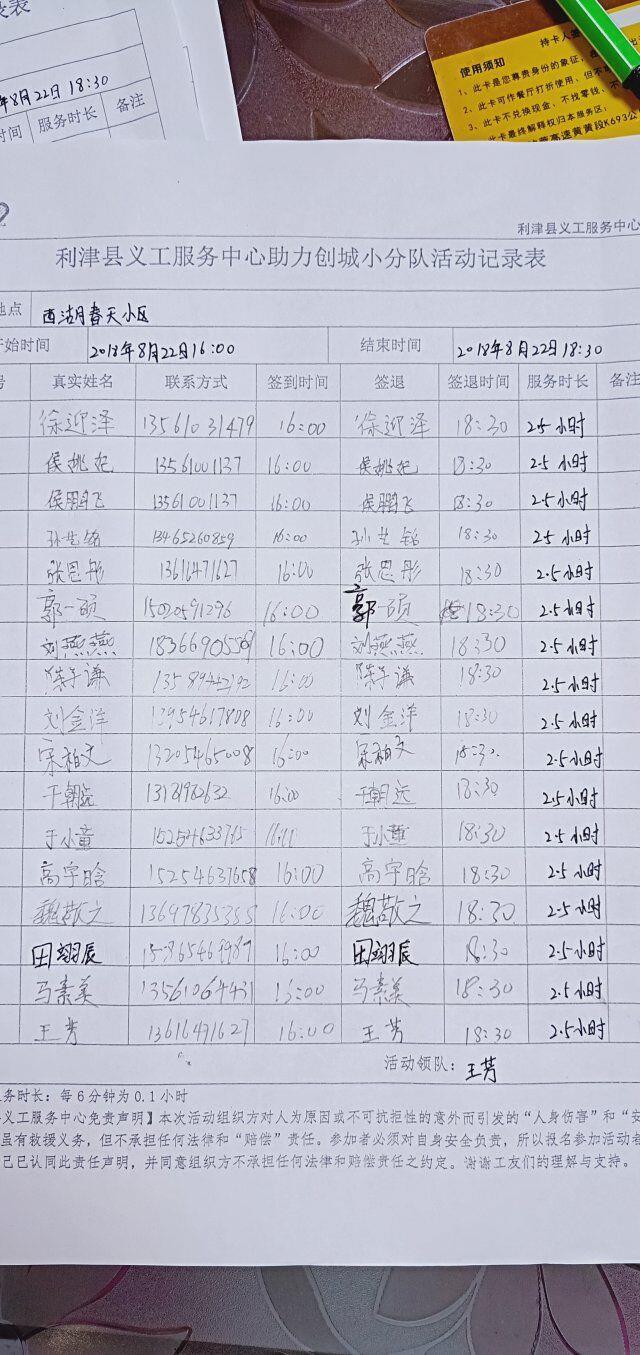 录表
年8月22日 18:30
时间 服务时长 备注
持卡人签
使用须知
1、此卡是您尊贵身份的象征，
2、此卡可作餐厅打折使用、但不
3、此卡不兑换现金、不找零钱、不
4、此卡最终解释权归本服务区；
高速黄黄段K693公
利津县义工服务中心
利津县义工服务中心助力创城小分队活动记录表
地点 西湖春天小区
开始时间 2018年8月22日16:00 结束时间 2018年8月22日18:30
号 真实姓名 联系方式 签到时间 签退 签退时间 服务时长 备注
徐迎泽 13561031479 16:00 徐迎泽 18:30 2.5小时
侯姚妃 13561001137 16:00 侯姚妃 18:30 2.5小时
侯鹏飞 13561001137 16:00 侯鹏飞 18:30 2.5小时
孙艺铭 13465260859 16:00 孙艺铭 18:30 2.5小时
张恩彤 13616471627 16:00 张恩彤 18:30 2.5小时
郭一硕 15020591296 16:00 郭一硕 18:30 2.5小时
刘燕燕 16:00 刘燕燕 18:30 2.5小时
陈子谦 16:00 陈子谦 18:30 2.5小时
刘金洋 13954617808 16:00 刘金洋 18:30 2.5小时
宋柏文 13205465008 16:00 宋柏文 18:30 2.5小时
于朝远 16:00 于朝远 18:30 2.5小时
于小童 15254633765 于小童 18:30 2.5小时
高宇晗 15254637658 16:00 高宇晗 18:30 2.5小时
魏敬之 13697835355 16:00 魏敬之 18:30 2.5小时
田翊辰 16:00 田翊辰 18:30 2.5小时
马素美 13561064431 16:00 马素美 18:30 2.5小时
王芳 13616471627 16:00 王芳 18:30 2.5小时
活动领队：王芳
服务时长：每6分钟为0.1小时
义工服务中心免责声明】本次活动组织方对人为原因或不可抗拒性的意外而引发的“人身伤害”和“安
虽有救援义务，但不承担任何法律和“赔偿”责任。参加者必须对自身安全负责，所以报名参加活动者
己已认同此责任声明，并同意组织方不承担任何法律和赔偿责任之约定。谢谢工友们的理解与支持。